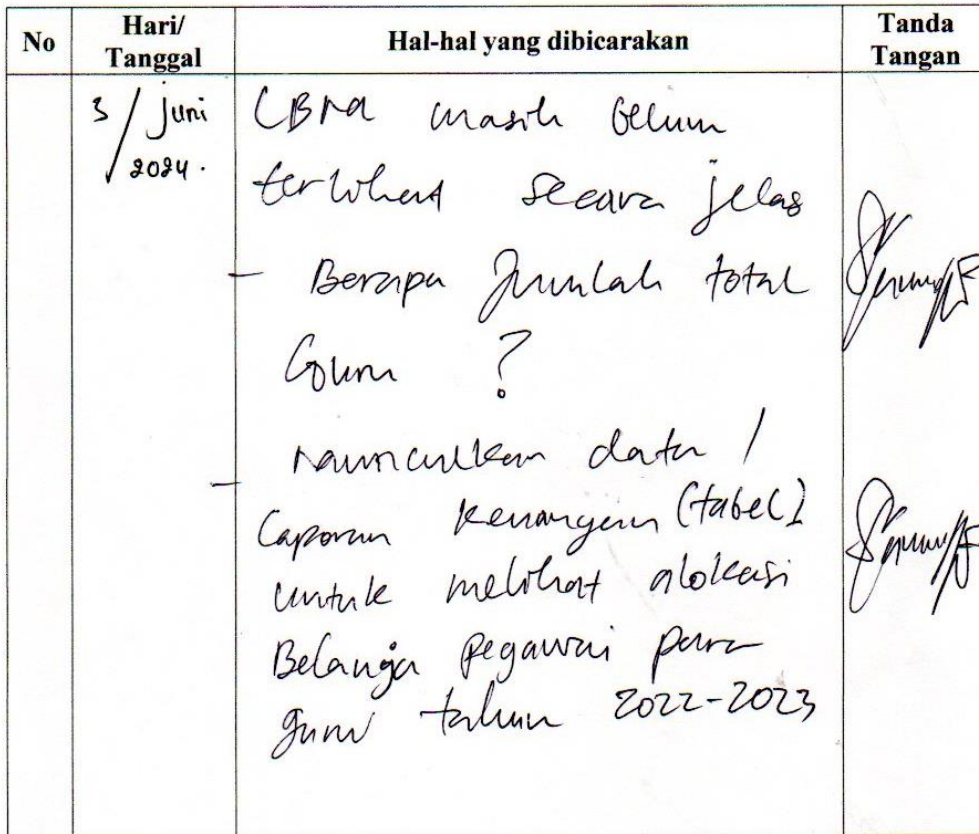 No
Hari/
Tanggal
Hal-hal yang dibicarakan
Tanda
Tangan
3 / Juni
2024.
LBM masih belum
terlihat secara jelas
- Berapa Jumlah total
Guru ?
- Munculkan data /
Laporan Keuangan (tabel)
untuk melihat alokasi
Belanja pegawai para
guru tahun 2022-2023